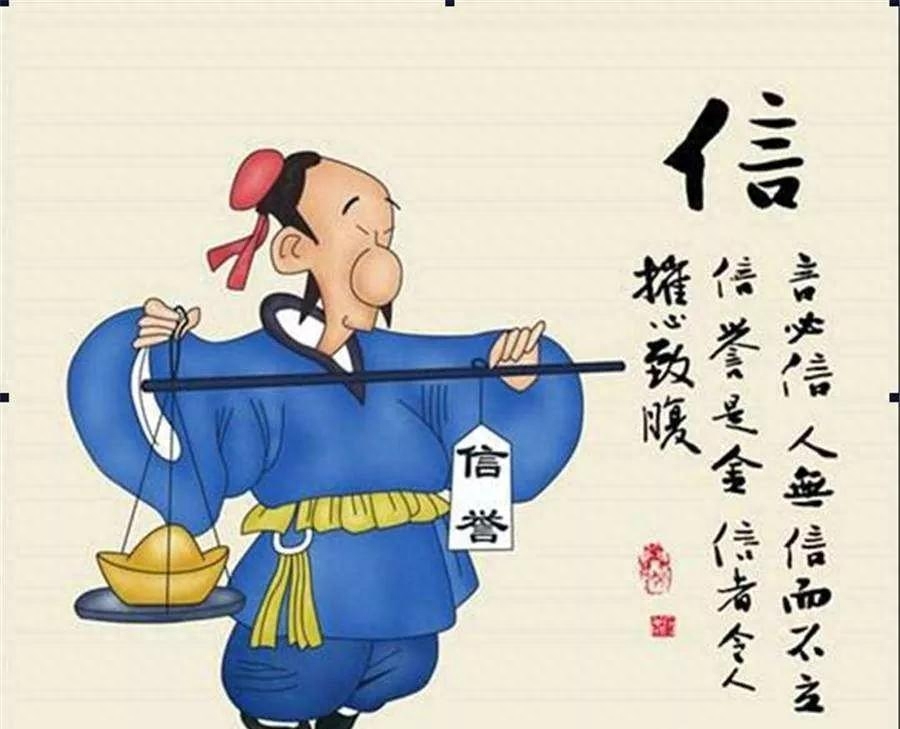 信
言必信 人無信而不立
信誉是金 信者令人
摧心致腹
信誉